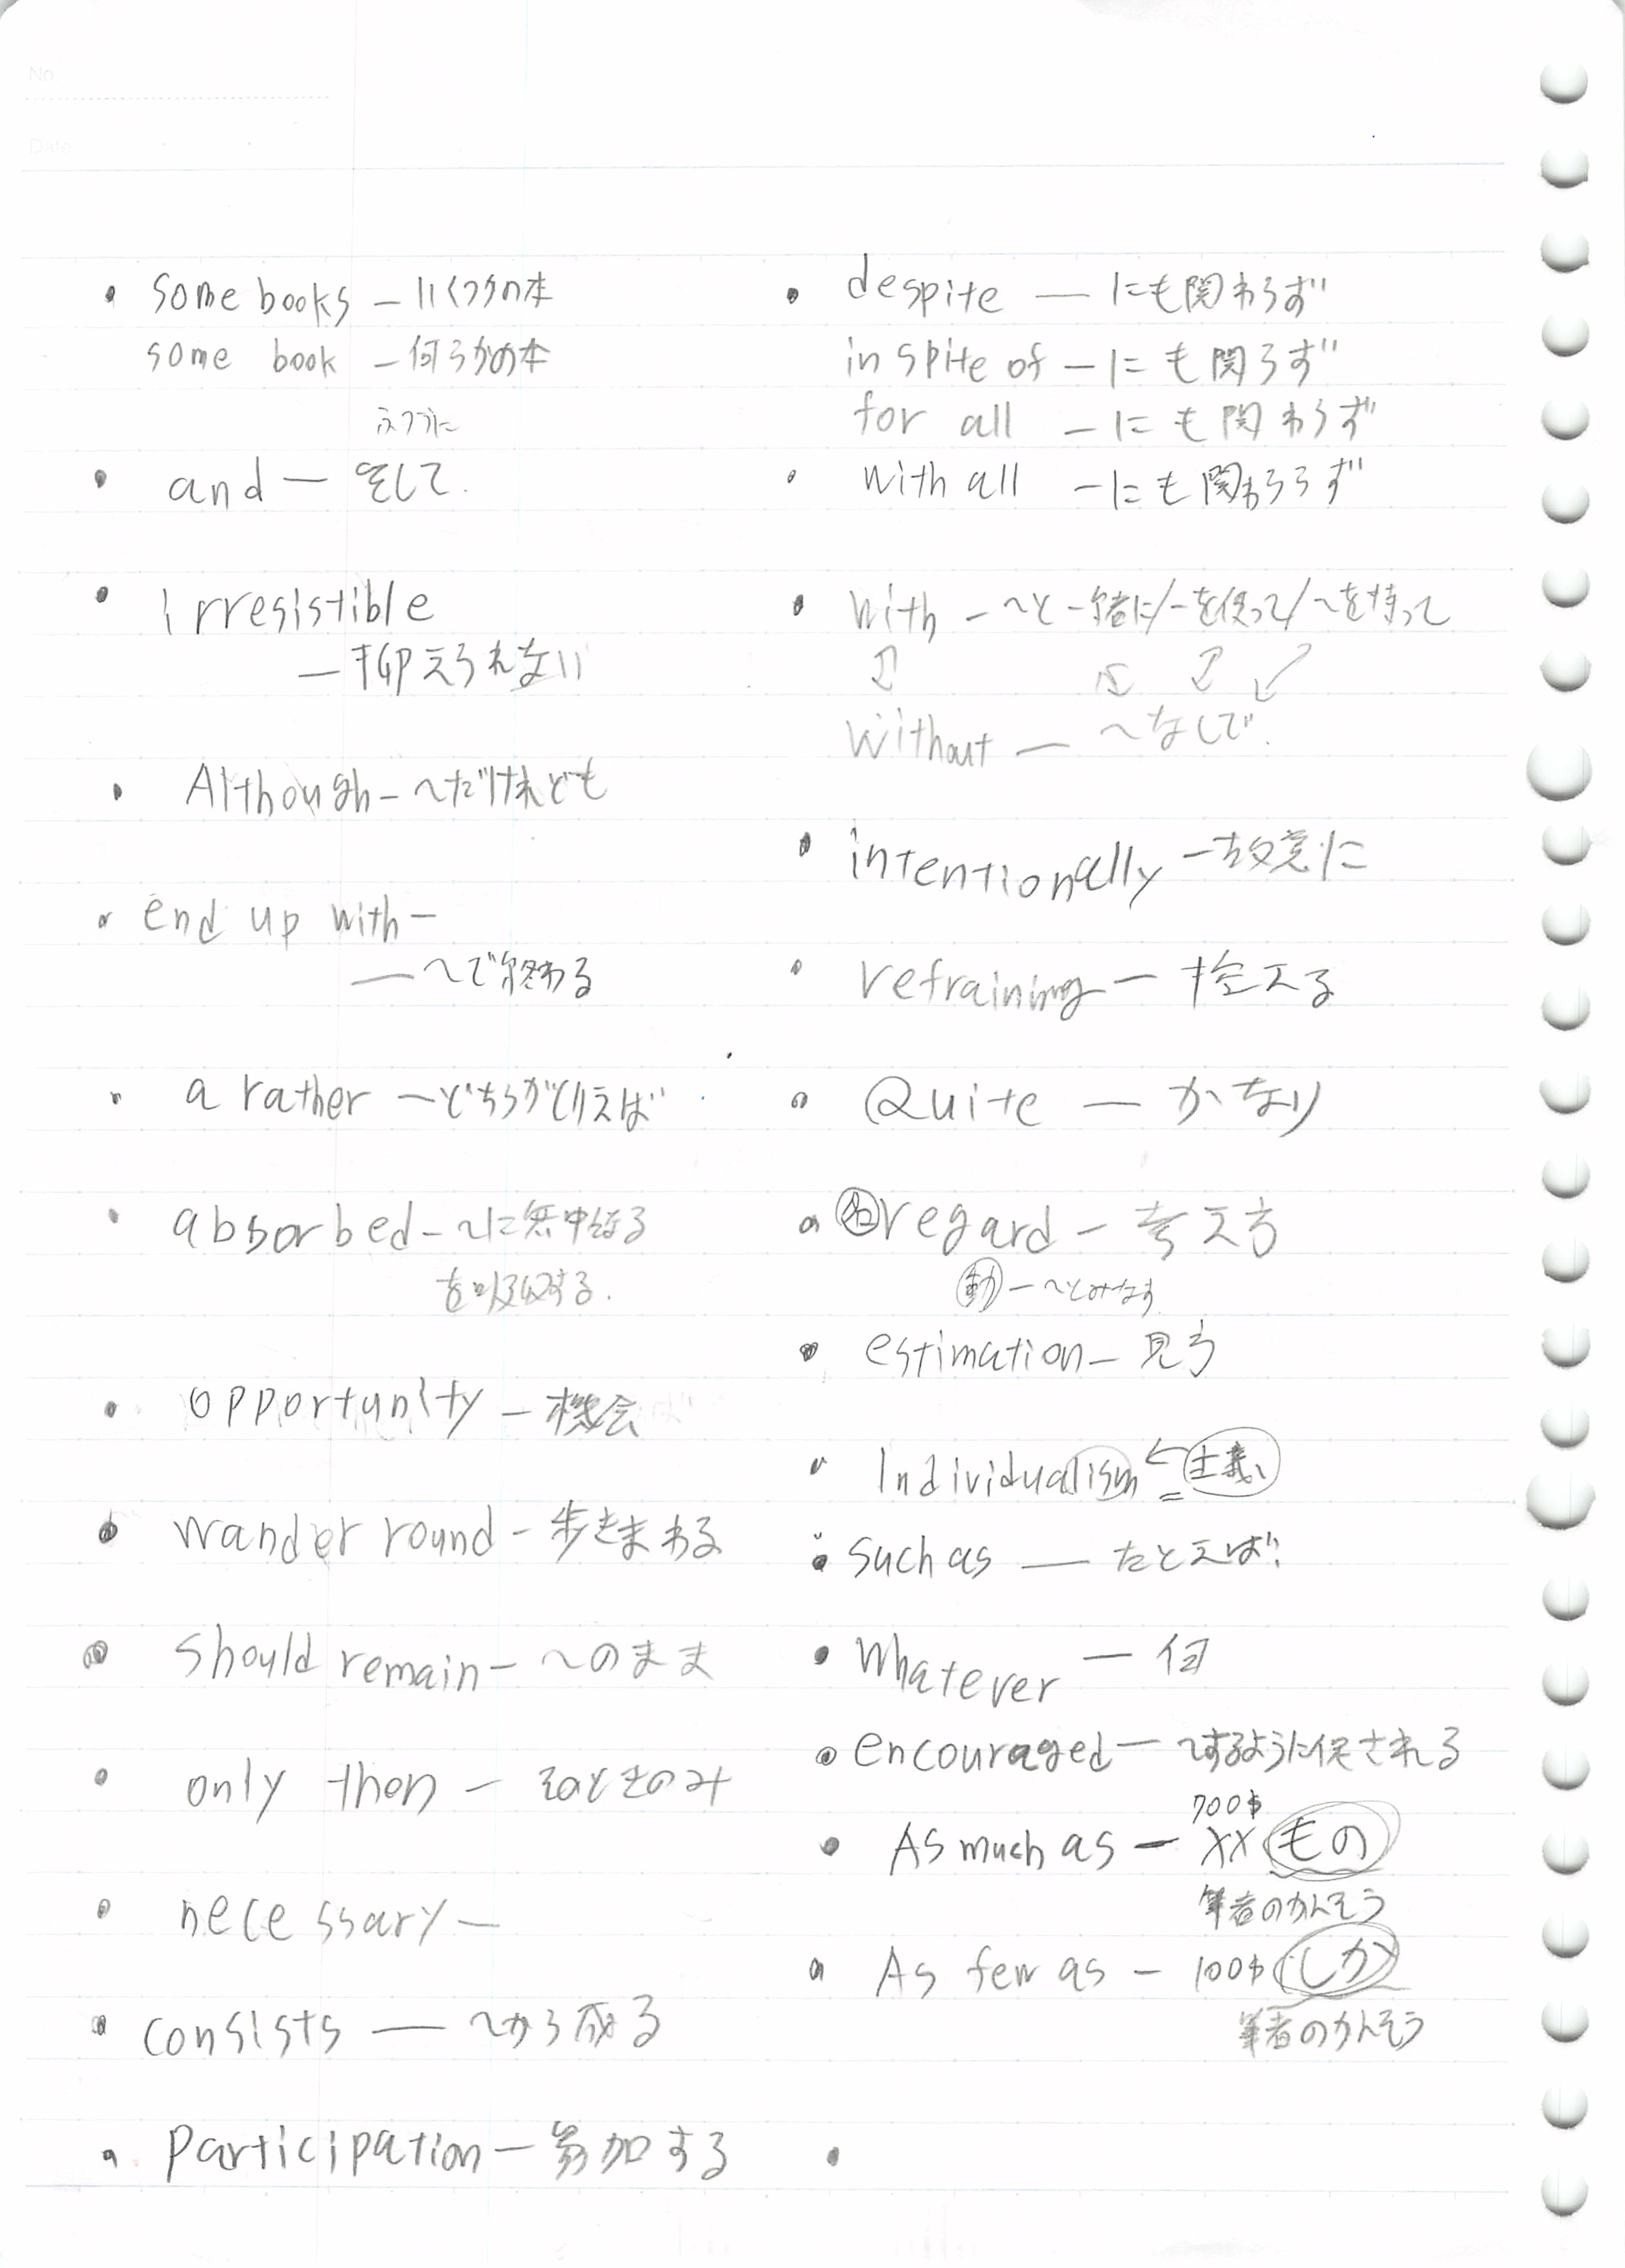 No.
Date
• some books – いくつかの本
some book – 何らかの本
ふつうに
• and — そして.
• irresistible
— 抑えられない
• Although – 〜だけれども
• end up with –
— 〜で終わる
• a rather – どちらかといえば
• absorbed – 〜に無中なる
を吸収する.
• opportunity – 機会
• wander round – 歩きまわる
• should remain – 〜のまま
• only then – そのときのみ
• necessary –
• consists — 〜から成る
• participation – 参加する
• despite — にも関わらず
in spite of – にも関らず
for all – にも関わらず
• with all – にも関わらず
• with – 〜と一緒に/〜を使って/〜を持って
↕ ↕ ↙
without — 〜なしで.
• intentionally – 故意に
• refraining – 控える
• Quite — かなり
• 名 regard – 考え方
動 – 〜とみなす
• estimation – 見方
• Individualism ← 主義
• such as — たとえば
• Whatever — 何
• encouraged — 〜するように促される
700$
• As much as – XX もの
筆者のかんそう
• As few as – 100$ しか
筆者のかんそう
•